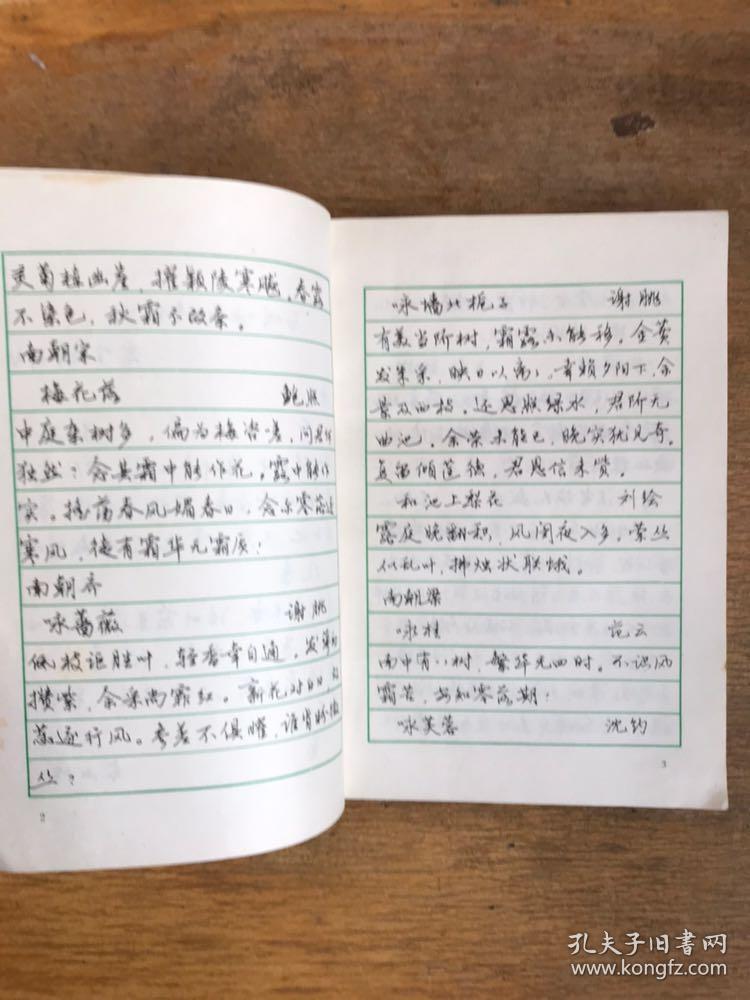 灵菊植幽崖，擢颖陵寒飚。春露
不染色，秋霜不改条。
南朝宋
梅花落 鲍照
中庭杂树多，偏为梅咨嗟，问君何
独然？念其霜中能作花。露中能作
实。摇荡春风媚春日，念尔零落逐
寒风，徒有霜华无霜质！
南朝齐
咏蔷薇 谢朓
低枝讵胜叶，轻香幸自通。发萼初
攒紫，余采尚霏红。新花对白日，故
蕊逐行风。参差不俱曜，谁肯盼微
丛？
2
咏墙北栀子 谢朓
有美当阶树，霜露未能移。金蕡
发朱采，映日以离离。幸赖夕阳下，余
景及西枝。还思照绿水，君阶无
曲池。余荣未能已，晚实犹见奇。
复留倾筵德，君恩信未赀。
和池上梨花 刘绘
露庭晚翻积，风闺夜入多。萦丛
似乱叶，拂烛状联蛾。
南朝梁
咏桂 范云
南中有八树，繁华无四时。不识风
霜苦，安知零落期！
咏芙蓉 沈约
3
孔夫子旧书网
www.kongfz.com